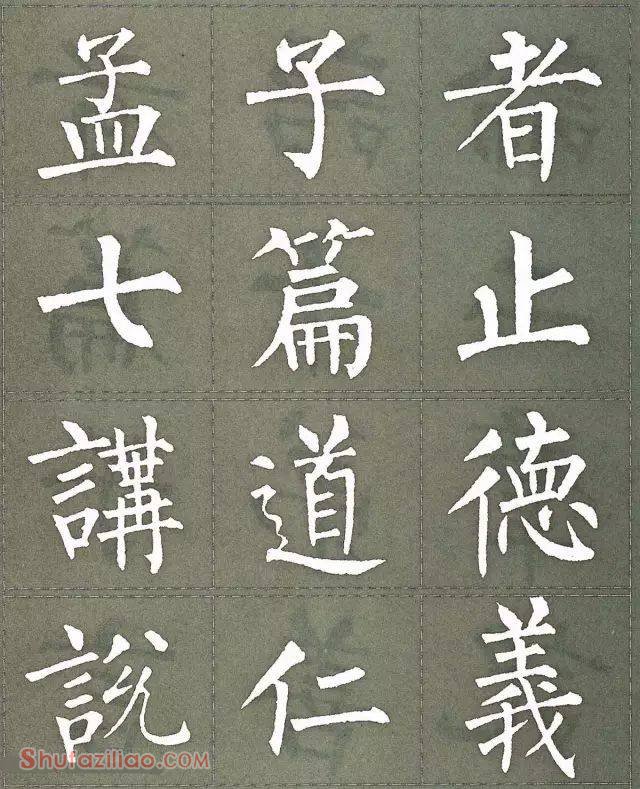 孟子者
七篇止
講道德
說仁義
Shufaziliao.com